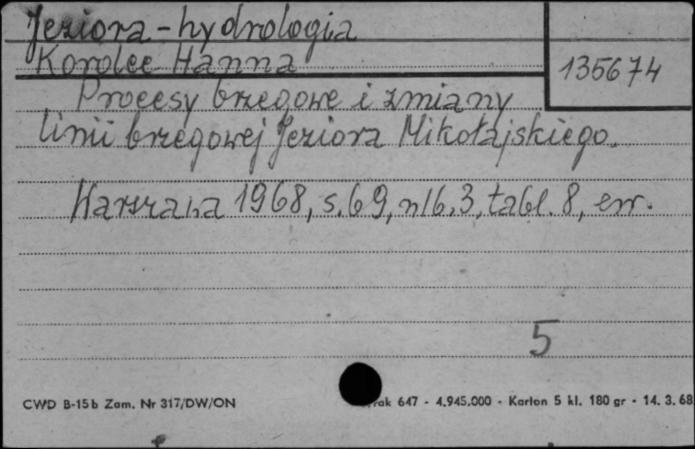 Jeziora - hydrologia
Korolec Hanna
135674
Procesy brzegowe i zmiany
linii brzegowej Jeziora Mikołajskiego.
Warszawa 1968, s. 69, nlb. 3, tabl. 8, err.
5
CWD B-15b Zam. Nr 317/DW/ON
rak 647 - 4.945.000 - Karton 5 kl. 180 gr - 14. 3. 68